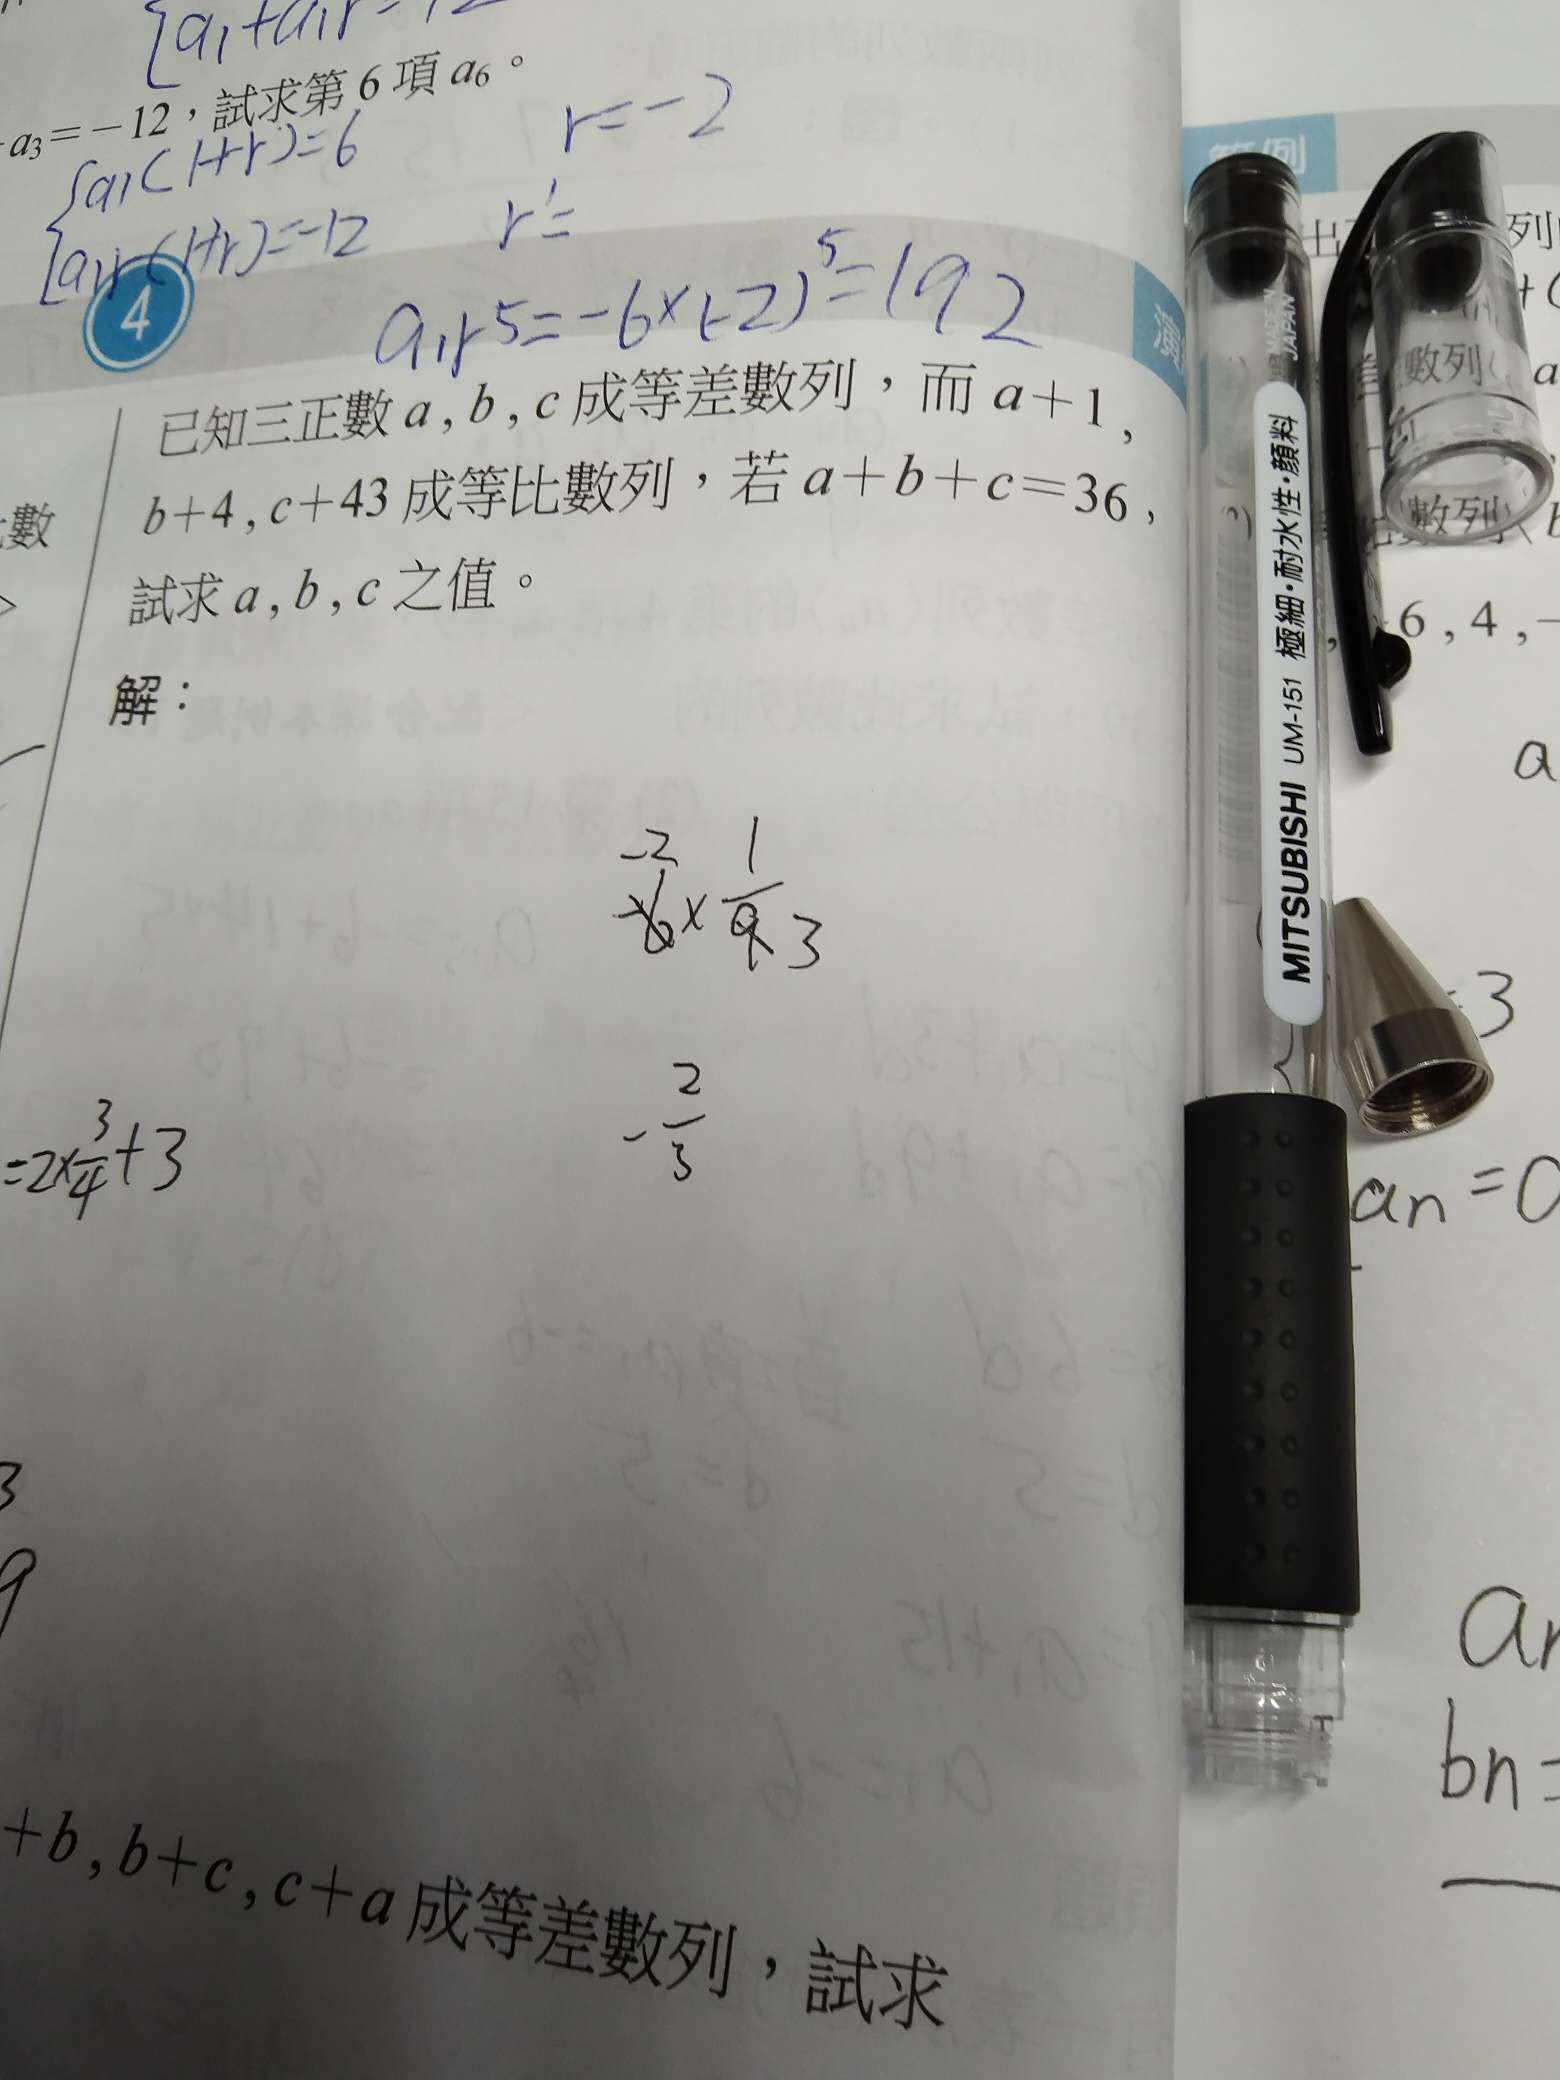 a₁+a₁r=12
a₃=−12，試求第 6 項 a₆。
a₁(1+r)=6
r=−2
a₁r(1+r)=−12
r=
4
a₁r⁵=−6×(−2)⁵=192
已知三正數 a , b , c 成等差數列，而 a+1 ,
b+4 , c+43 成等比數列，若 a+b+c=36 ,
試求 a , b , c 之值。
解：
數
−2 1
−6× 9 3
−2/3
=2×3/4+3
3
9
+b , b+c , c+a 成等差數列，試求
範例
數列
a
數列
b
6 , 4 , −
MADE IN JAPAN
MITSUBISHI UM-151 極細・耐水性・顔料
a
=3
an=
an
bn=